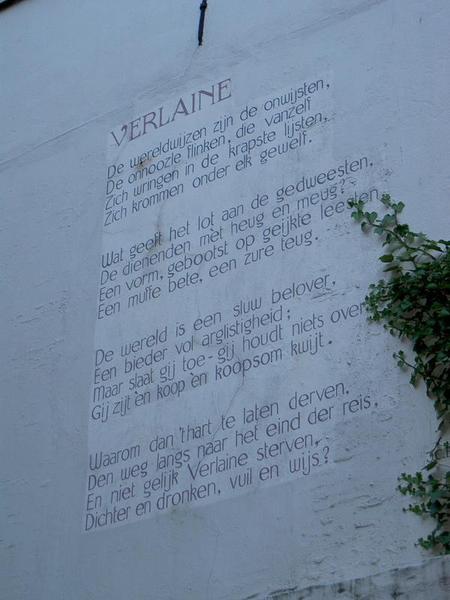 VERLAINE
De wereldwijzen zijn de onwijsten,
De onnoozle flinken, die vanzelf
Zich wringen in de krapste lijsten,
Zich krommen onder elk gewelf.
Wat geeft het lot aan de gedweesten,
De dienenden met heug en meug?
Een vorm, gebootst op geijkte leesten,
Een muffe bete, een zure teug.
De wereld is een sluw belover,
Een bieder vol arglistigheid;
Maar slaat gij toe-gij houdt niets over
Gij zijt en koop en koopsom kwijt.
Waarom dan 'thart te laten derven,
Den weg langs naar het eind der reis,
En niet gelijk Verlaine sterven,
Dichter en dronken, vuil en wijs?